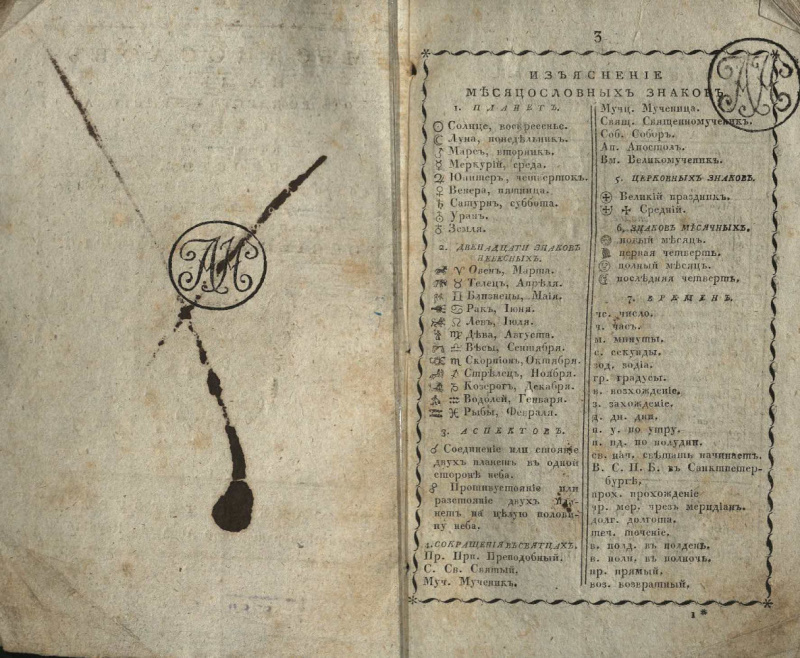 АН
3
АН
ИЗЪЯСНЕНІЕ
МѢСЯЦОСЛОВНЫХЪ ЗНАКОВЪ
1. ПЛАНЕТЪ.
☉ Солнце, воскресенье.
☾ Луна, понедѣльникъ.
♂ Марсъ, вторникъ.
☿ Меркурій, среда.
♃ Юпитеръ, четвертокъ.
♀ Венера, пятница.
♄ Сатурнъ, суббота.
♅ Уранъ.
♁ Земля.
2. ДВЕНАДЦАТИ ЗНАКОВЪ
НЕБЕСНЫХЪ.
♈ Овенъ, Марта.
♉ Телецъ, Апрѣля.
♊ Близнецы, Маія.
♋ Ракъ, Іюня.
♌ Левъ, Іюля.
♍ Дѣва, Августа.
♎ Вѣсы, Сентября.
♏ Скорпіонъ, Октября.
♐ Стрѣлецъ, Ноября.
♑ Козерогъ, Декабря.
♒ Водолей, Генваря.
♓ Рыбы, Февраля.
3. АСПЕКТОВЪ.
☌ Соединеніе или стояніе
двухъ планетъ въ одной
сторонѣ неба.
☍ Противустояніе или
разстояніе двухъ пла-
нетъ на цѣлую полови-
ну неба.
4. СОКРАЩЕНІЯ ВЪ СВЯТЦАХЪ.
Пр. Прп. Преподобный.
С. Св. Святый.
Муч. Мученикъ.
Мучц. Мученица.
Свящ. Священномученикъ.
Соб. Соборъ.
Ап. Апостолъ.
Вм. Великомученикъ.
5. ЦЕРКОВНЫХЪ ЗНАКОВЪ.
Великій праздникъ.
Средній.
6. ЗНАКОВЪ МѢСЯЧНЫХЪ.
новый мѣсяцъ.
первая четверть.
полный мѣсяцъ.
послѣдняя четверть.
7. ВРЕМЕНЪ.
чс. число.
ч. часъ.
м. минуты.
с. секунды.
зод. зодіа.
гр. градусы.
в. восхожденіе.
з. захожденіе.
д. дн. дни.
п. у. по утру.
п. пд. по полудни.
св. нач. свѣтать начинаетъ.
В. С. П. Б. въ Санктпетер-
бургѣ,
прох. прохожденіе
чр. мер. чрезъ меридіанъ.
долг. долгота.
теч. теченіе.
в. полд. въ полдень.
в. полн. въ полночь.
пр. прямый.
воз. возвратный.
1 *